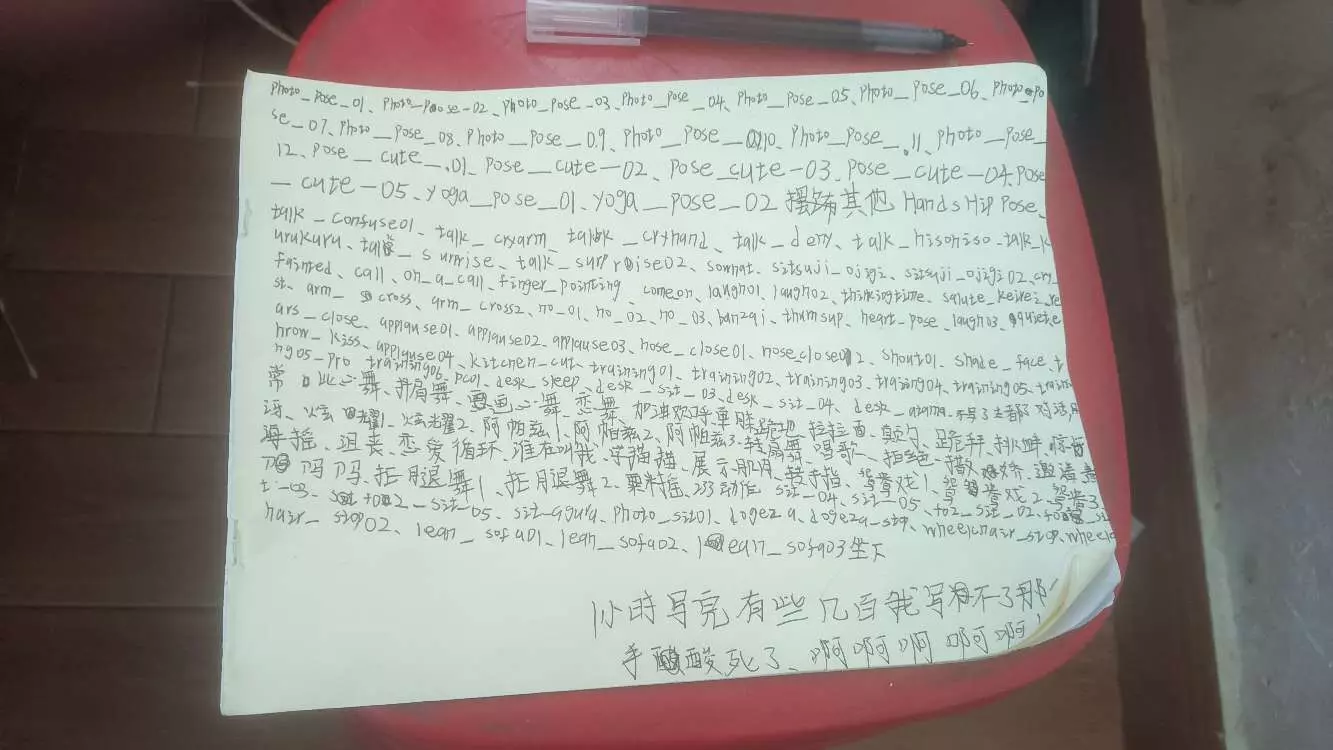 Photo_Pose_01、Photo_Poose-02、Photo_Pose_03、Photo_Pose_04、Photo_Pose_05、Photo_Pose_06、Photo_Po
se_07、Photo_Pose_08、Photo_Pose_09、Photo_Pose_10、Photo_Pose_11、Photo_Pose_
12、Pose_cute_01、Pose_cute-02、Pose_cute-03、Pose_cute-04、Pose
_cute-05、yoga_Pose_01、yoga_Pose_02 其他 HandsHipPose、
talk_confuse01、talk_cryarm、talk_cryhand、talk_deny、talk_hisohiso、talk_k
urukuru、talk_surprise、talk_surprise02、sowhat、sitsuji_ojigi、sitsuji_ojigi02、cry_
fainted、call、on_a_call、finger_pointing、comeon、laugh01、laugh02、thinkingtime、salute_keirei、re
st、arm_cross、arm_cross2、no_01、no_02、no_03、banzai、thumsup、heart_pose、laugh03、quiet、e
ars_close、applause01、applause02、applause03、nose_close01、nose_close02、shout01、shade_face、t
hrow_kiss、applause04、kitchen_cut、training01、training02、training03、training04、training05、traini
ng05_pro、training06、pc01、desk_sleep、desk_sit_03、desk_sit_04、desk_atama
舞、抖肩舞、恋舞 加油欢呼、单膝跪地、拉拉面、颠勺、跪拜
炫耀1、炫耀2、阿帕兹1、阿帕兹2、阿帕兹3、转扇舞、唱歌、拒绝、撒娇、邀请
海摇、沮丧、恋爱循环、谁在叫我、学猫猫、展示肌肉、鸳鸯戏1、鸳鸯戏2、鸳鸯3
吗吗、拒月退舞1、拒月退舞2、粟料摇、233动作 sit_04、sit_05、to2_sit_02、
t-03、to2_sit_05、sit-agura、Photo_sit01、dogeza、dogeza_stop、wheelchair_stop、wheelc
hair_stop02、lean_sofa01、lean_sofa02、lean_sofa03坐下
1小时写完有些几百我写不了那
手酸死了、啊啊啊啊啊